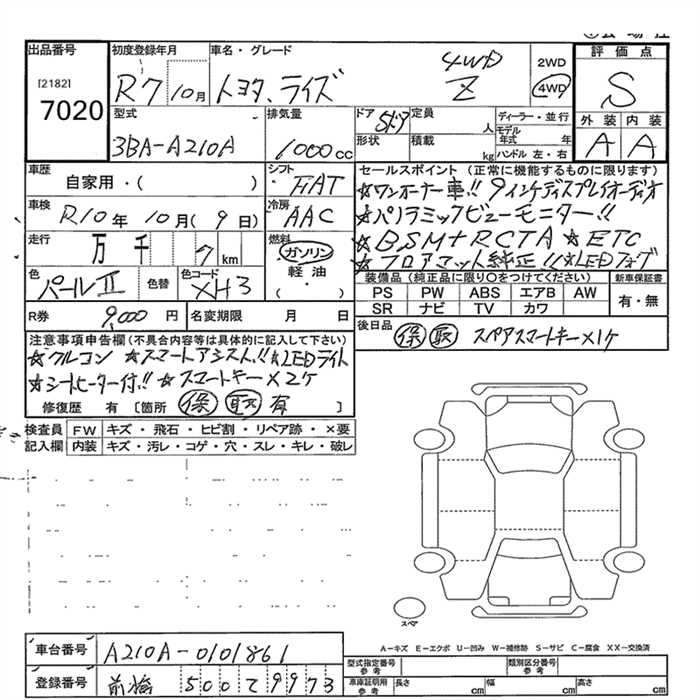 出品番号 初度登録年月 車名・グレード 2WD 評価点
[2182] R7 10月 トヨタ、ライズ 4WD Z 4WD S
7020
型式 排気量 ドア 5ドア 定員 人 ディーラー・並行 外装 内装
3BA-A210A 1000cc 形状 積載 kg モデル年式 年 A A
ハンドル 左・右
車歴 シフト セールスポイント (正常に機能するものに限ります)
自家用・( ) FAT ☆ワンオーナー車!! 9インチディスプレイオーディオ
車検 冷房 ☆パノラミックビューモニター!!
R10年 10月(9日) AAC ☆BSM+RCTA ☆ETC
走行 万 千 7 km 燃料 ガソリン ☆フロアマット純正!! ☆LEDフォグ
軽油
( )
色 色替 色コード 装備品 (純正品に限り○をつけてください) 新車保証書
パールII XH3 PS PW ABS エアB AW 有・無
SR ナビ TV カワ
R券 9,000円 名変期限 月 日 後日品
保 取 スペアスマートキー×1ヶ
注意事項申告欄 (不具合内容等は具体的に記入して下さい)
☆クルコン ☆スマートアシスト!! ☆LEDライト
☆シートヒーター付!! ☆スマートキー×2ヶ
修復歴 有 [箇所 保 取 有 ]
検査員 FW キズ・飛石・ヒビ割・リペア跡・×要
記入欄 内装 キズ・汚レ・コゲ・穴・スレ・キレ・破レ
スペア
A-キズ E-エクボ U-凹み W-補修跡 S-サビ C-腐食 XX-交換済
車台番号 A210A-0101861
登録番号 前橋 500 て 9973
型式指定番号 参考 類別区分番号 参考
車庫証明用 参考 長さ cm 幅 cm 高さ cm